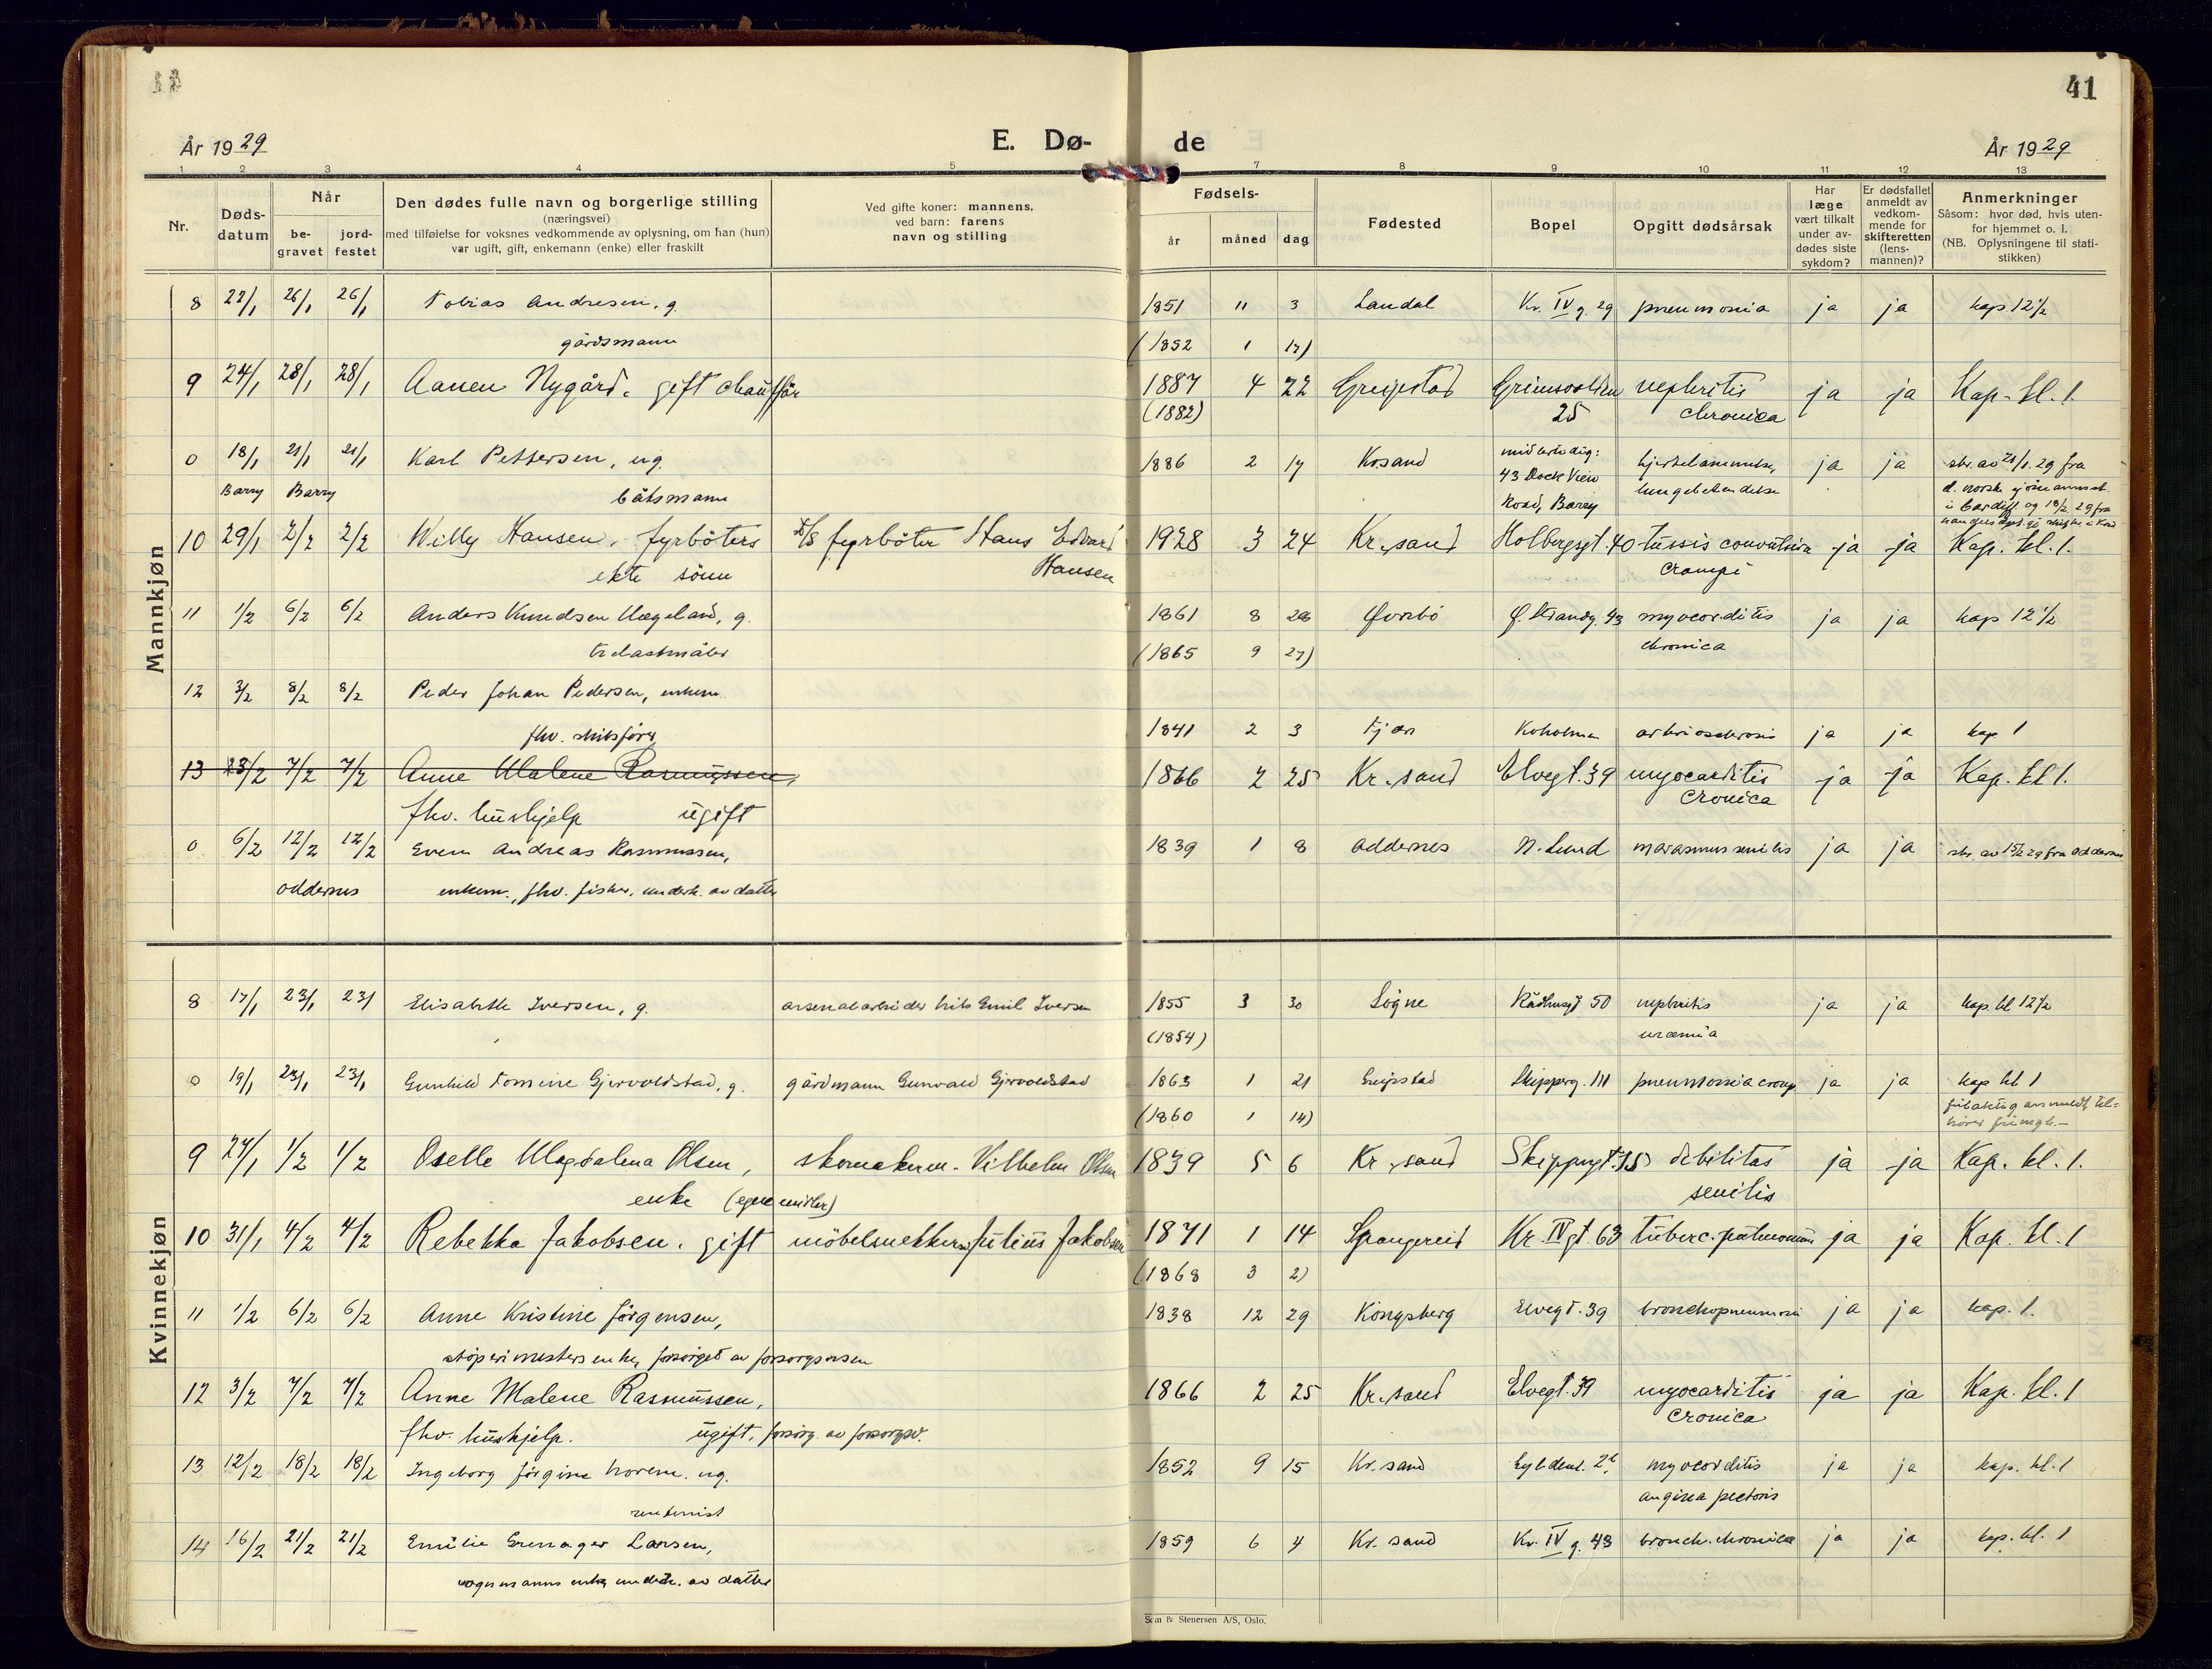 41
År 1929 E. Dø- de År 1929
1 2 3 4 5 7 8 9 10 11 12 13
Nr.
Døds-
datum
Når
be-
gravet
jord-
festet
Den dødes fulle navn og borgerlige stilling
(næringsvei)
med tilføielse for voksnes vedkommende av oplysning, om han (hun)
var ugift, gift, enkemann (enke) eller fraskilt
Ved gifte koner: mannens,
ved barn: farens
navn og stilling
Fødsels-
år måned dag
Fødested
Bopel
Opgitt dødsårsak
Har
læge
vært tilkalt
under av-
dødes siste
sykdom?
Er dødsfallet
anmeldt av
vedkom-
mende for
skifteretten
(lens-
mannen)?
Anmerkninger
Såsom: hvor død, hvis uten-
for hjemmet o. l.
(NB. Oplysningene til stati-
stikken)
Mannkjøn
8 22/1 26/1 26/1 Tobias Andresen, g. 1851 11 3 Landal Kr. IV g. 29 pneumonia ja ja kap 12 1/2
gårdsmann (1852 1 17)
9 24/1 28/1 28/1 Aanen Nygård. gift chauffør 1887 4 22 Greipstad Grimsvollen nephritis ja ja Kap. kl. 1.
(1882) 25 chronica
0 18/1 21/1 21/1 Karl Pettersen, ug. 1886 2 17 Kr.sand midlertidig: ja ja
Barry Barry båtsmann 43 Dock View
Road, Barry
10 29/1 2/2 2/2 Willy Hansen, fyrböters fyrböter Hans Edvard 1928 3 24 Kr.sand Holbergsgt. 40 tussis convulsiva ja ja Kap. kl. 1.
ekte sönn Hansen crampi
11 1/2 6/2 6/2 Anders Knudsen Hægeland, g. 1861 8 28 Øvrebö Ø. Strandg. 43 myocarditis ja ja kap 12 1/2
trelastmåler (1865 9 27) chronica
12 3/2 8/2 8/2 Peder Johan Pedersen, enkem.
fhv. skibsförer 1841 2 3 Tjøm Koholmen arteriosclerosis ja ja kap 1
13 3/2 7/2 7/2 Anne Malene Rasmussen, 1866 2 25 Kr.sand Elvegt. 39 myocarditis ja ja Kap. kl 1.
fhv. hushjelp ugift cronica
0 6/2 12/2 12/2 Even Andreas Rasmussen, 1839 1 8 Oddernes N. Lund marasmus senilis ja ja skr. av 15/2 29 fra Oddernes
Oddernes enkem., fhv. fisker, underh. av datter
Kvinnekjøn
8 17/1 23/1 23/1 Elisabeth Iversen, g. arsenalarbeider Nils Emil Iversen 1855 3 30 Sögne Rådhusgt. 50 nephritis ja ja kap. kl 12 1/2
(1854) uræmia
0 19/1 23/1 23/1 Gunhild Tomine Gjervoldstad, g. gårdmann Gunvald Gjervoldstad 1863 1 21 Greipstad Skipperg. 111 pneumonia croup. ja ja kap kl 1
(1860 1 14)
9 27/1 1/2 1/2 Oselle Magdalena Olsen, skomakerm. Vilhelm Olsen 1839 5 6 Kr.sand Skippergt. 15 debilitas ja ja Kap. kl. 1.
enke (egne midler) senilis
10 31/1 4/2 4/2 Rebekka Jakobsen. gift möbelsnekker Julius Jakobsen 1871 1 14 Spangereid Kr. IV gt. 63 tuberc. pulmonum ja ja Kap. kl. 1
(1868 3 2)
11 1/2 6/2 6/2 Anne Kristine Jörgensen, 1838 12 29 Kongsberg Elvegt. 39 bronchopneumoni ja ja kap. 1.
stöperimesters enke, forsörget av forsorgsvesen
12 3/2 7/2 7/2 Anne Malene Rasmussen, 1866 2 25 Kr.sand Elvegt. 39 myocarditis ja ja Kap. kl. 1
fhv. hushjelp. ugift, forsörg. av forsorgsv. cronica
13 12/2 18/2 18/2 Ingeborg Jörgine Norem. ug. 1852 9 15 Kr. sand Gyldenl. myocarditis ja ja kap. kl. 1
rentenist angina pectoris
14 16/2 21/2 21/2 Emilie Grenager Larsen, 1859 6 4 Kr. sand Kr. IV g. 43 bronch. chronica ja ja kap. kl. 1
vognmanns enke, underh. av datter
Sem & Stenersen A/S, Oslo.